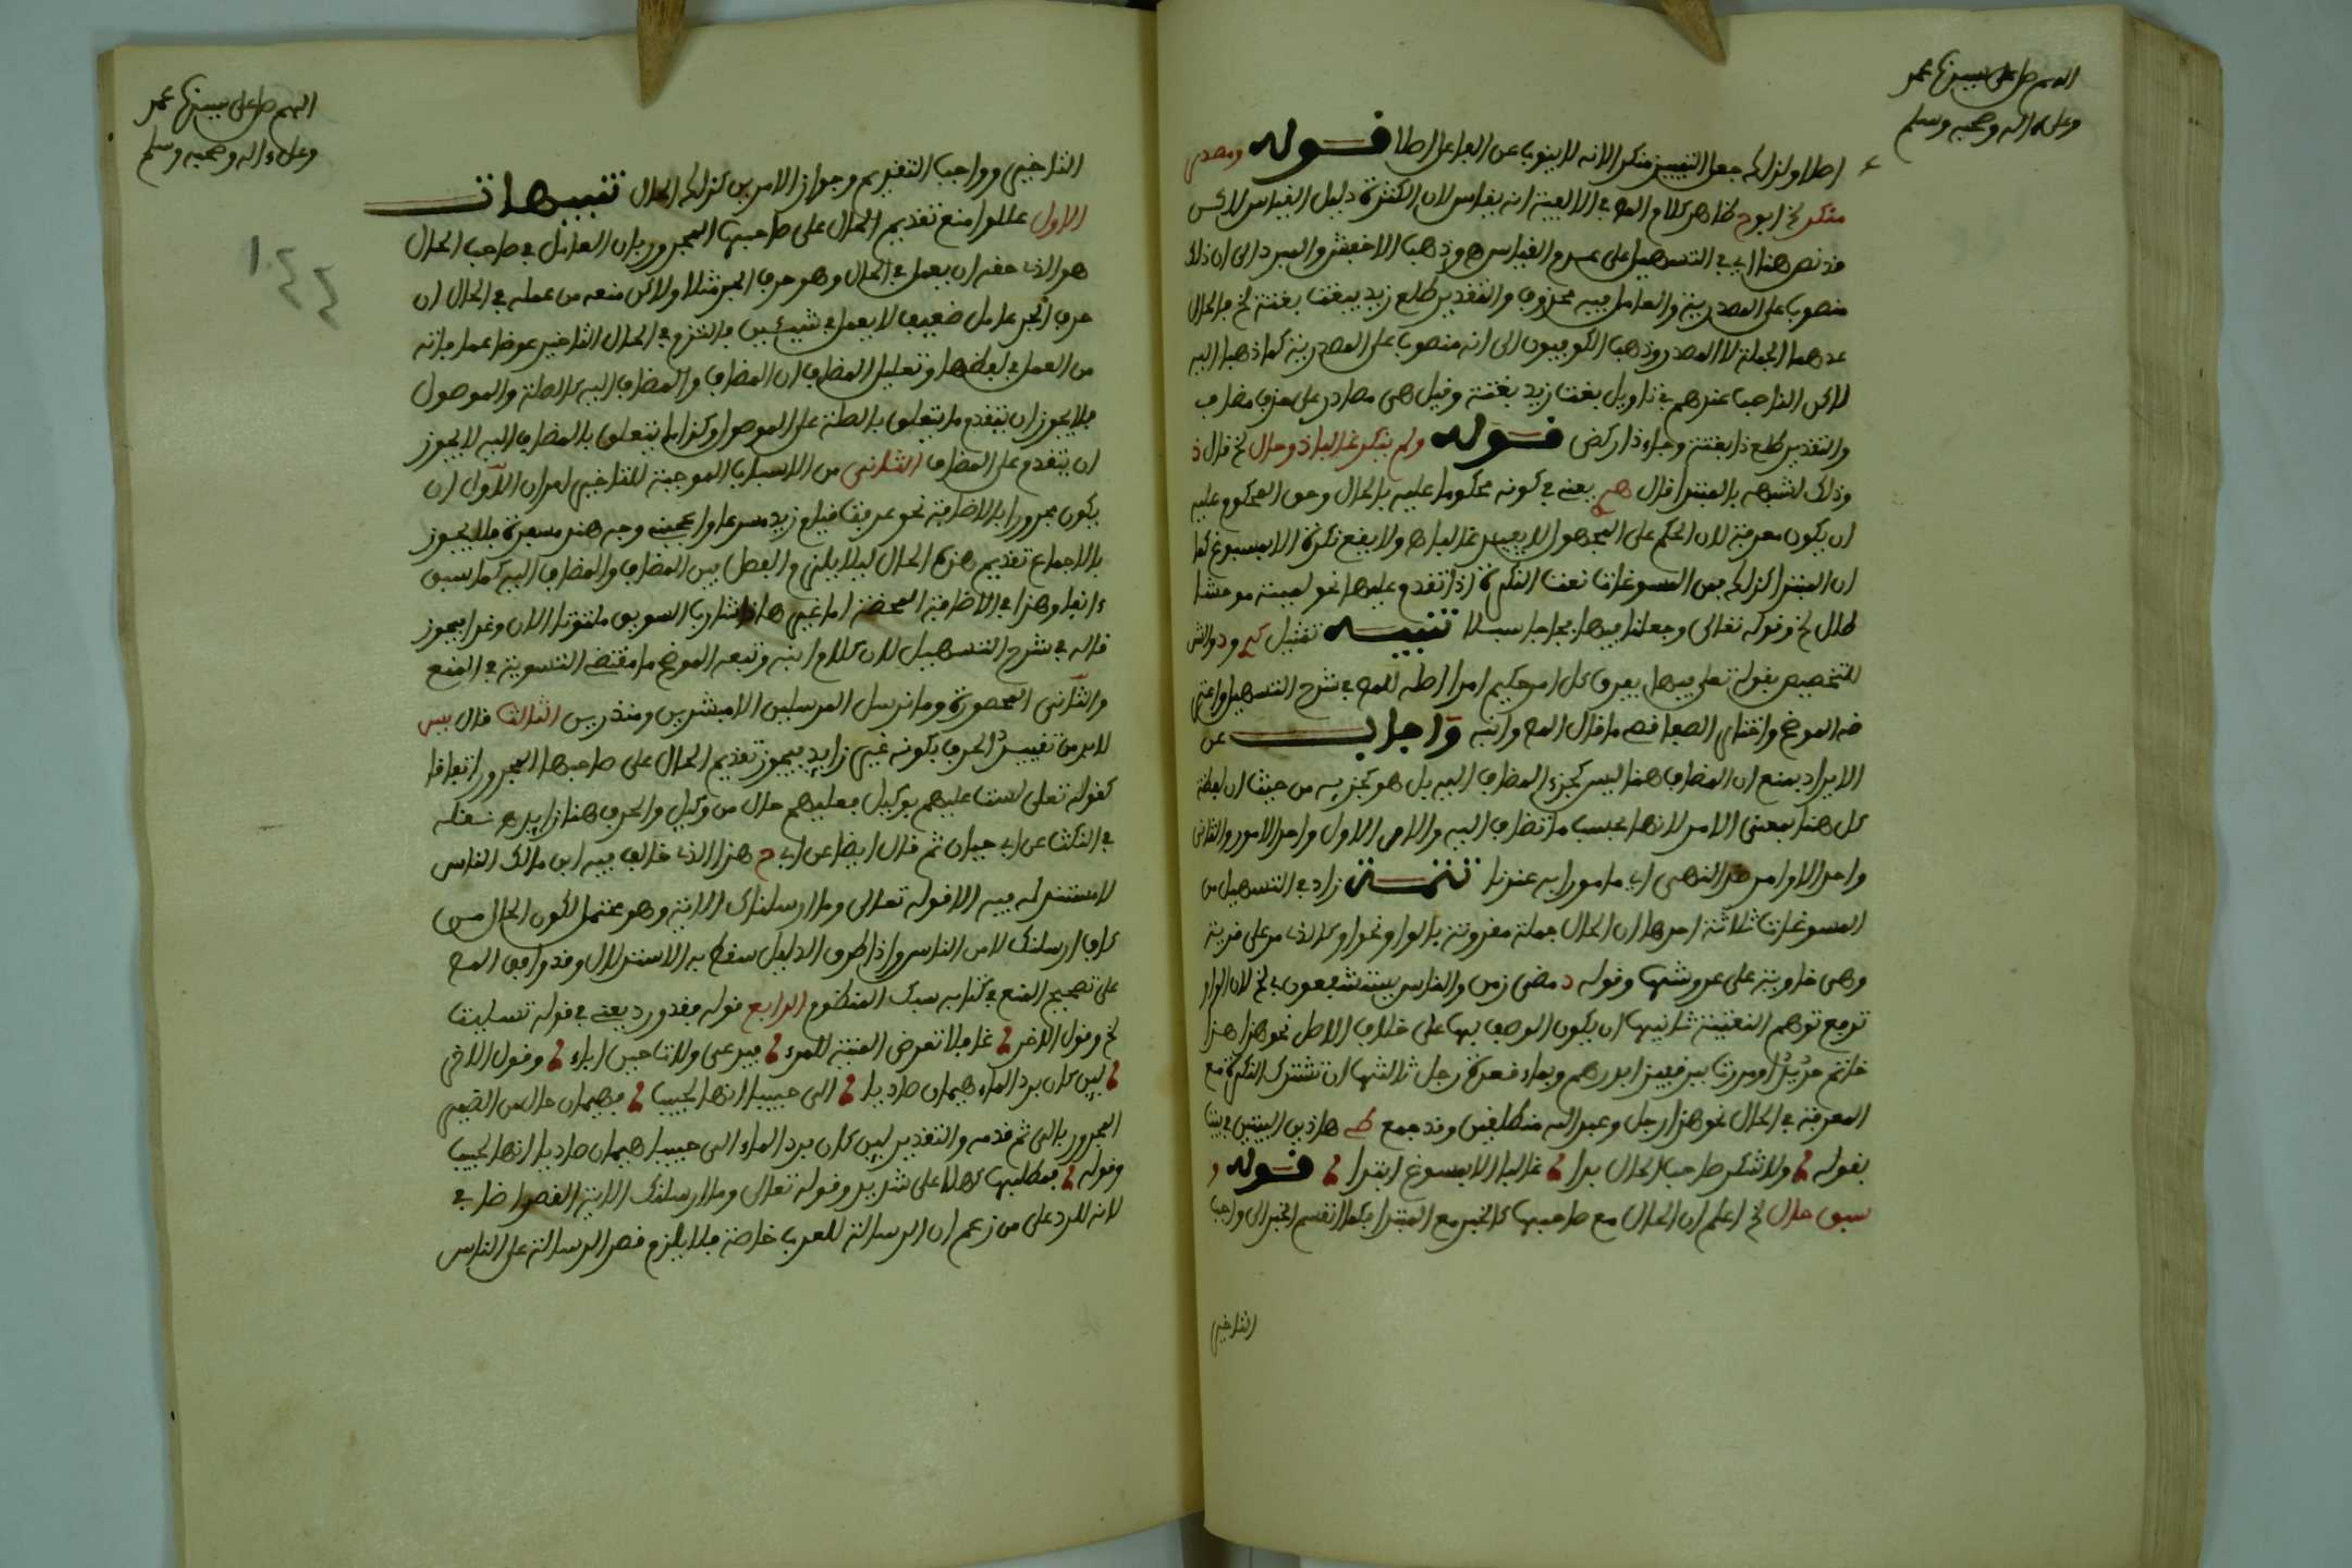 اللهم صل على سيدنا محمد
وعلى ءاله وصحبه وسلم
اصلا ولذلك جعل التفسير منكرا لانه لا ينوب عن الفاعل اصلا قوله ومصدر
منكر الخ ابوح ظاهر كلام المص في الالفية انه يقاس لان الكثرة دليل القياس لاكن
قد نص هنا اي في التسهيل على عدم القياس ه وذهب الاخفش والمبرد الى ان ذلك
منصوب على المصدرية والعامل فيه محذوف والتقدير طلع زيد يبغت بغتة الخ فالحال
عندهما الجملة لا المصدر وذهب الكوفيون الى انه منصوب على المصدرية كما ذهبا اليه
لاكن الناصب عندهم في تاويل بغت زيد بغتة وقيل هي مصادر على حذف مضاف
والتقدير طلع ذا بغتة وجاء ذا ركض قوله ولم ينكر غالبا ذو حال الخ قال
وذلك لشبهه بالمبتدا قال يعني في كونه محكوما عليه بالحال وحق المحكوم عليه
ان يكون معرفة لان الحكم على المجهول لا يفيد غالبا ه ولا يقع نكرة الا بمسوغ كما
ان المبتدا كذلك من المسوغات نعت النكرة اذا تقدم عليها نحو لمية موحشا
طلل الخ وقوله تعالى وجعلنا فيها فجاجا سبلا تنبيه تمثيل
للتخصيص بقوله تعلى فيها يفرق كل امر حكيم امرا اصله للمص في شرح التسهيل واعتر
ضه الموضح واختار الصفاقصي ما قال المص وابنه واجاب عن
الايراد بمنع ان المضاف هنا ليس كجزء المضاف اليه بل هو كجزيه من حيث ان لفظة
كل هنا بمعنى الامر لانها بحسب ما تضاف اليه والامر الاول واحد الامور والثاني
واحد الاوامر ضد النهي اي مامورا به عندنا تتمة زاد في التسهيل من
المسوغات ثلاثة احدها ان الحال جملة مقرونة بالواو نحو او كالذي مر على قرية
وهي خاوية على عروشها وقوله مضى زمن والناس يستشفعون بي الخ لان الواو
ترفع توهم النعتية ثانيها ان يكون الوصف بها على خلاف الاصل نحو هذا
خاتم حديدا ومررت ببر قفيزا بدرهم وبماء قعدة رجل ثالثها ان تشترك النكرة مع
المعرفة في الحال نحو هذا رجل وعبد الله منطلقين وقد جمع هاذين البيتين في بيت
بقوله ولا تنكر صاحب الحال بدا غالبا الا بمسوغ ابتدا قوله و
سبق حال الخ اعلم ان الحال مع صاحبها كالخبر مع المبتدا فكما انقسم الخبر الى واجب
التاخير
اللهم صل على سيدنا محمد
وعلى ءاله وصحبه وسلم
التاخير وواجب التقديم وجواز الامرين كذلك الحال تنبيهات
الاول عللوا منع تقديم الحال على صاحبها المجرور بان العامل في صاحب الحال
هو الذي حقه ان يعمل في الحال وهو حرف الجر مثلا ولاكن منعه من عمله في الحال ان
حرف الجر عامل ضعيف لا يعمل في شيئين فالتزم في الحال التاخير عوضا عما فاته
من العمل في لفظها وتعليل المضاف ان المضاف والمضاف اليه كالصلة والموصول
فلا يجوز ان يتقدم ما يتعلق بالصلة على الموصول وكذا ما يتعلق بالمضاف اليه لا يجوز
ان يتقدم على المضاف الثاني من الاسباب الموجبة للتاخير امران الاول ان
يكون مجرورا بالاضافة نحو عرفت قيام زيد مسرعا واعجبني وجه هند مسفرة فلا يجوز
بالاجماع تقديم هذه الحال ليلا يلزم الفصل بين المضاف والمضاف اليه كما سبق
ءانفا وهذا في الاضافة المحضة اما غيرها شارب السويق ملتوتا الان وغدا فيجوز
قاله في شرح التسهيل لان كلام ابنه وتبعه الموضح ما مقتضى التسوية في المنع
والثاني المحصورة وما نرسل المرسلين الا مبشرين ومنذرين الثالث قال يس
لابد من تقييد الحرف بكونه غير زايد فيجوز تقديم الحال على صاحبها المجرور اتفاقا
كقوله تعلى لست عليهم بوكيل فعليهم حال من وكيل والحرف هنا زايد ه نقله
في النكت عن ابي حيان ثم قال ايضا عن ابي ح هذا الذي خالف فيه ابن مالك الناس
لا مستند له فيه الا قوله تعالى وما ارسلناك الاية وهو محتمل لكون الحال من
كاف ارسلنك لا من الناس واذا طرق الدليل سقط به الاستدلال وقد وافق المص
على تصحيح المنع في كتابه سبك المنظوم الرابع قوله فقد ورد يعني في قوله تسليت
الخ وقول الاخر غافلا تعرض المنية للمرء فيدعى ولات حين اباء وقول الاخر
لين كان برد الماء هيمان صاديا الى حبيبا انها لحبيب فهيمان حال من الضمير
المجرور بالى ثم قدمه والتقدير لين كان برد الماء الى حبيبا هيمان صاديا انها لحبيب
وقوله فمطلبها كهلا على شديد وقوله تعالى وما ارسلنك الاية القصر اضافي
لانه للرد على من زعم ان الرسالة للعرب خاصة فلا يلزم قصر الرسالة على الناس